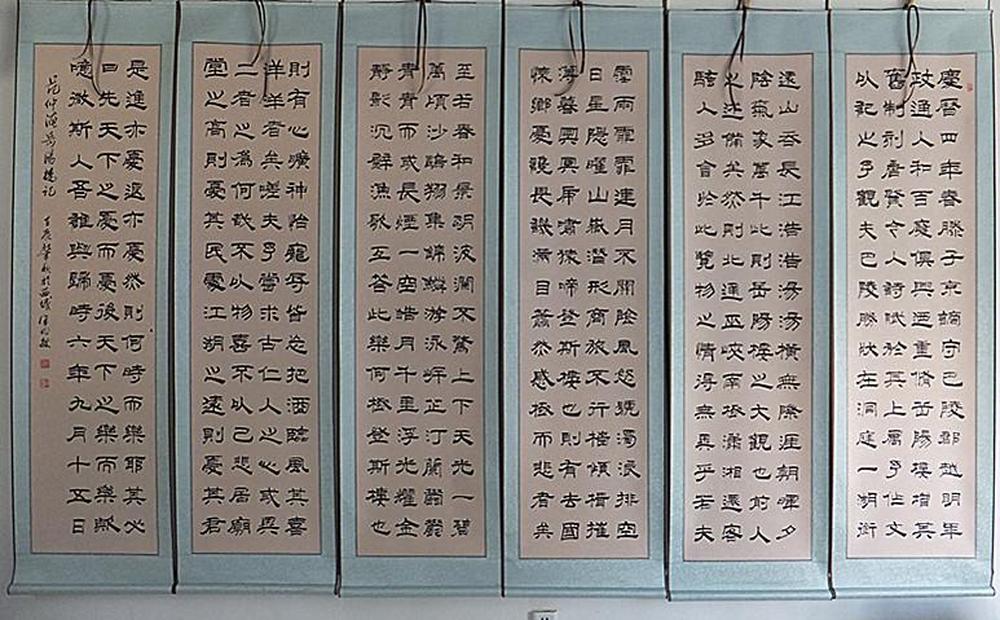 慶曆四年春滕子京謫守巴陵郡越明年
政通人和百廢俱興迺重脩岳陽樓增其
舊制刻唐賢今人詩賦於其上屬予作文
以記之予觀夫巴陵勝狀在洞庭一湖銜
遠山吞長江浩浩湯湯橫無際涯朝暉夕
陰氣象萬千此則岳陽樓之大觀也前人
之述備矣然則北通巫峽南極瀟湘遷客
騷人多會於此覽物之情得無異乎若夫
霪雨霏霏連月不開陰風怒號濁浪排空
日星隱曜山嶽潛形商旅不行檣傾楫摧
薄暮冥冥虎嘯猿啼登斯樓也則有去國
懷鄉憂讒畏譏滿目蕭然感極而悲者矣
至若春和景明波瀾不驚上下天光一碧
萬頃沙鷗翔集錦鱗游泳岸芷汀蘭鬱鬱
青青而或長煙一空皓月千里浮光耀金
靜影沉璧漁歌互答此樂何極登斯樓也
則有心曠神怡寵辱皆忘把酒臨風其喜
洋洋者矣嗟夫予嘗求古仁人之心或異
二者之為何哉不以物喜不以己悲居廟
堂之高則憂其民處江湖之遠則憂其君
是進亦憂退亦憂然則何時而樂耶其必
曰先天下之憂而憂後天下之樂而樂歟
噫微斯人吾誰與歸時六年九月十五日
范仲淹岳陽樓記 壬辰肇秋於